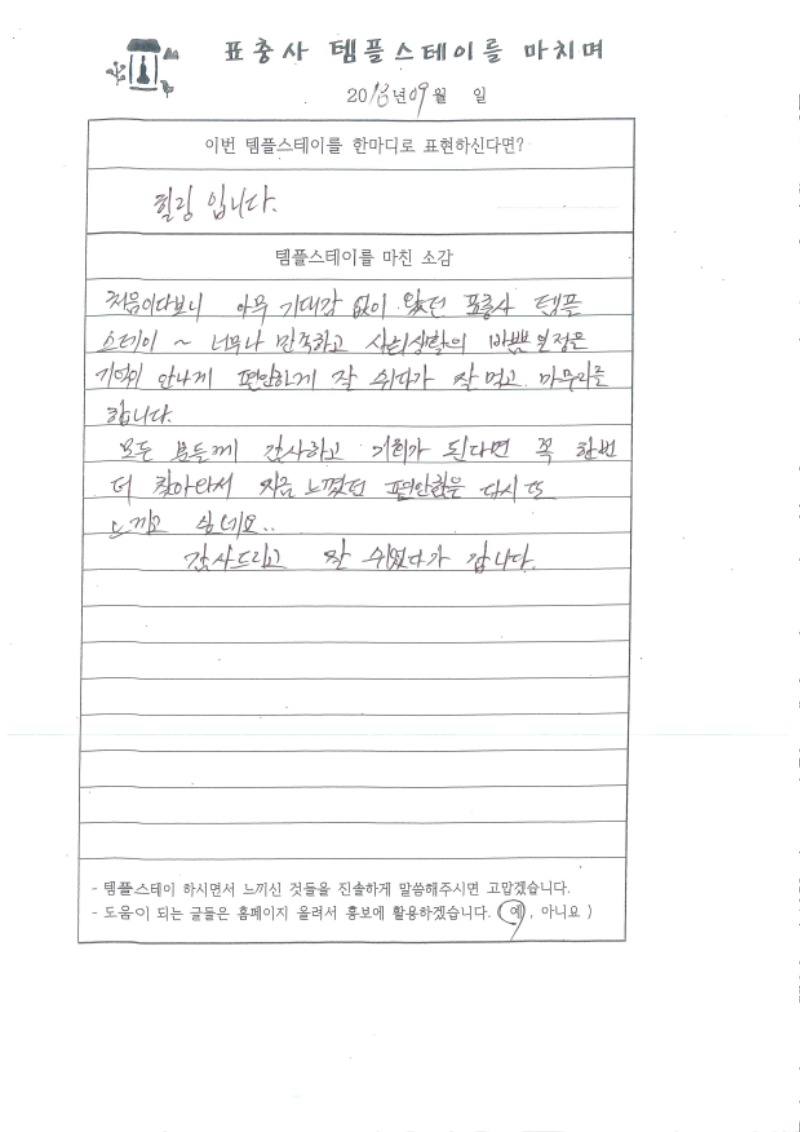 표충사 템플스테이를 마치며
2018년 09월 일
이번 템플스테이를 한마디로 표현하신다면?
힐링 입니다.
템플스테이를 마친 소감
처음이다보니 아무 기대감 없이 왔던 표충사 템플
스테이 ~ 너무나 만족하고 사회생활의 바쁜 일정은
기억이 안나게 편안하게 잘 쉬다가 잘 먹고 마무리를
합니다.
모든 분들께 감사하고 기회가 된다면 꼭 한번
더 찾아와서 지금 느꼈던 편안함을 다시 또
느끼고 싶네요..
감사드리고 잘 쉬었다가 갑니다.
- 템플스테이 하시면서 느끼신 것들을 진솔하게 말씀해주시면 고맙겠습니다.
- 도움이 되는 글들은 홈페이지 올려서 홍보에 활용하겠습니다. (예, 아니요 )